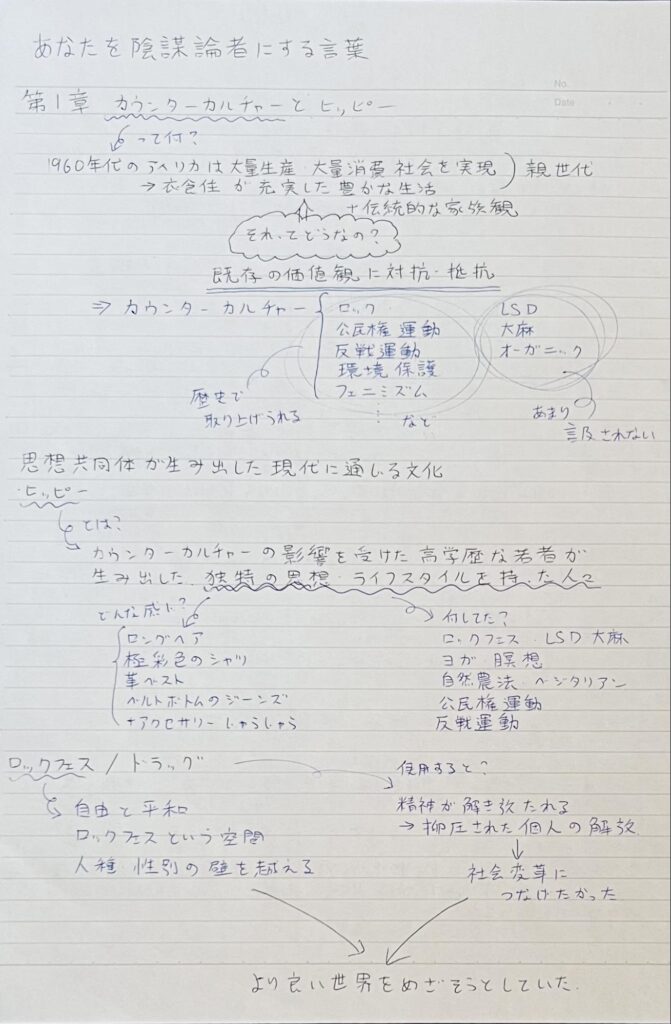 あなたを陰謀論者にする言葉
No.
Date
第1章 カウンターカルチャーと ヒッピー
って何?
1960年代のアメリカは大量生産・大量消費 社会を実現 親世代
→ 衣食住 が 充実した豊かな生活
+伝統的な家族観
それってどうなの?
既存の価値観に対抗・抵抗
⇒ カウンターカルチャー
ロック
公民権運動
反戦運動
環境保護
フェミニズム
⋮ など
LSD
大麻
オーガニック
歴史で
取り上げられる
あまり
言及されない
思想共同体が生み出した現代に通じる文化
・ヒッピー
とは?
カウンターカルチャーの影響を受けた高学歴な若者が
生み出した、独特の思想・ライフスタイルを持った人々
どんな感じ?
ロングヘア
極彩色のシャツ
革ベスト
ベルトボトムのジーンズ
+アクセサリーじゃらじゃら
何してた?
ロックフェス・LSD 大麻
ヨガ・瞑想
自然農法・ベジタリアン
公民権運動
反戦運動
ロックフェス / ドラッグ
自由と平和
ロックフェスという空間
人種・性別の壁を越える
使用すると?
精神が解き放たれる
→ 抑圧された個人の解放
↓
社会変革に
つなげたかった
より良い世界をめざそうとしていた.